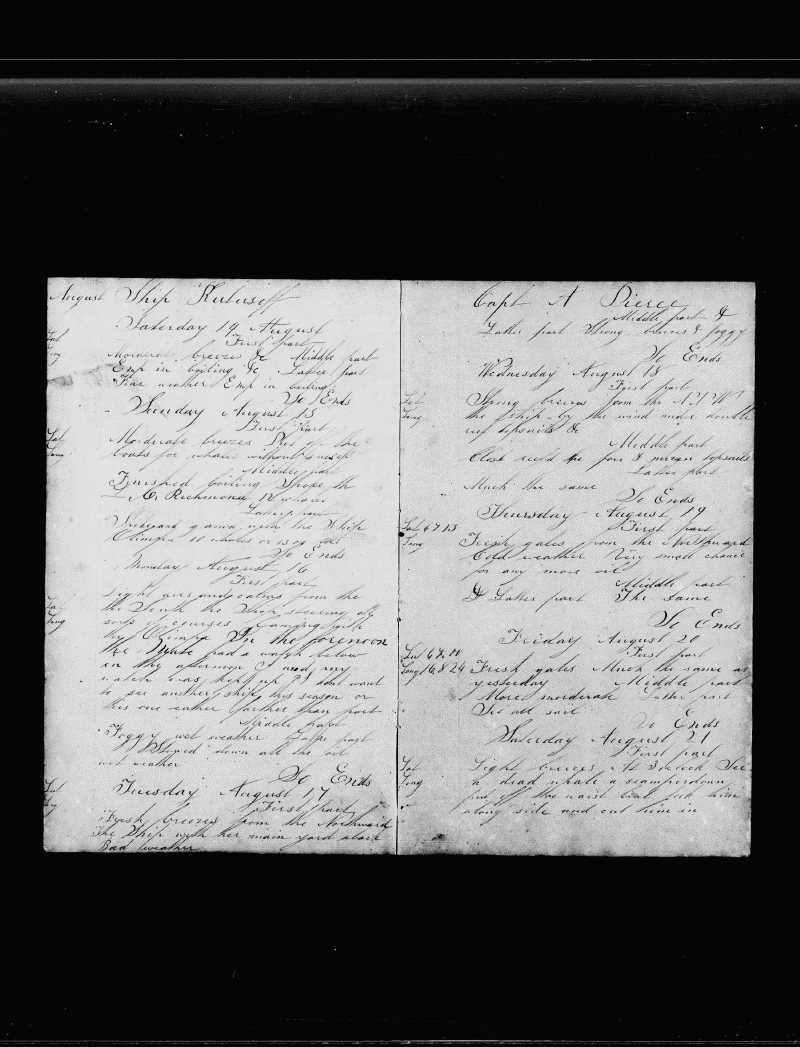 August Ship Kutusoff
Saturday 14 August
First part
Lat
Long
Morderate breezes &c Middle part
Emp in boiling &c Latter part
Fine weather Emp in boiling
So Ends
Sunday August 15
First part
Lat
Long
Morderate breezes of the
boats for whales without
Middle part
Finished boiling Spoke th
L C Richmond 12 whales
Latter part
gamed with the Ship
Olimpia 11 whales
So Ends
Monday August 16
First part
Light airs and calms from the
Lat
Long
the South the Ship steering all
sorts of courses gaming with
the Olimpia In the forenoon
the Mate had a watch below
in the afternoon I and my
watch was kept up I dont want
to see another ship this season or
this one eather farther than port
Middle part
Foggy wet weather Latter part
Stowed down all the oil
wet weather
So Ends
Lat
Long
Tuesday August 17
First part
Fresh breezes from the Northward
The Ship with her main yard aback
Bad weather
Capt A Pierce
Middle part &
Latter part Strong breezes & foggy
So Ends
Wednesday August 18
First part
Lat
Long
Strong breezes from the N N W
the Ship by the wind under double
reef topsails &c
Middle part
Close reefd the fore & mizan topsails
Latter part
Much the same
So Ends
Thursday August 19
First part
Lat 67 13
Long
Fresh gales from the Northward
Cold weather Very small chance
for any more oil
Middle part
& Latter part The same
So Ends
Friday August 20
First part
Lat 67.00
Long 168 24
Fresh gales Much the same as
yesterday Middle part
More morderate Latter part
Set all sail
So Ends
Saturday August 21
First part
Lat
Long
Light breezes At Oclock See
a dead whale a
put off the waist boat took him
along side and cut him in